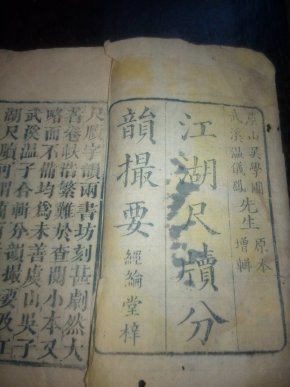 虞山吳學圃先生原本
武溪溫儀鳳先生增輯
江湖尺牘分
韻撮要
經綸堂梓
尺牘字韻兩書坊刻甚劇然大
書卷帙浩繁難於查閱小本又
略而不備均為未善虞山吳子
武溪溫子合輯分韻撮要及江
湖尺牘可謂簡